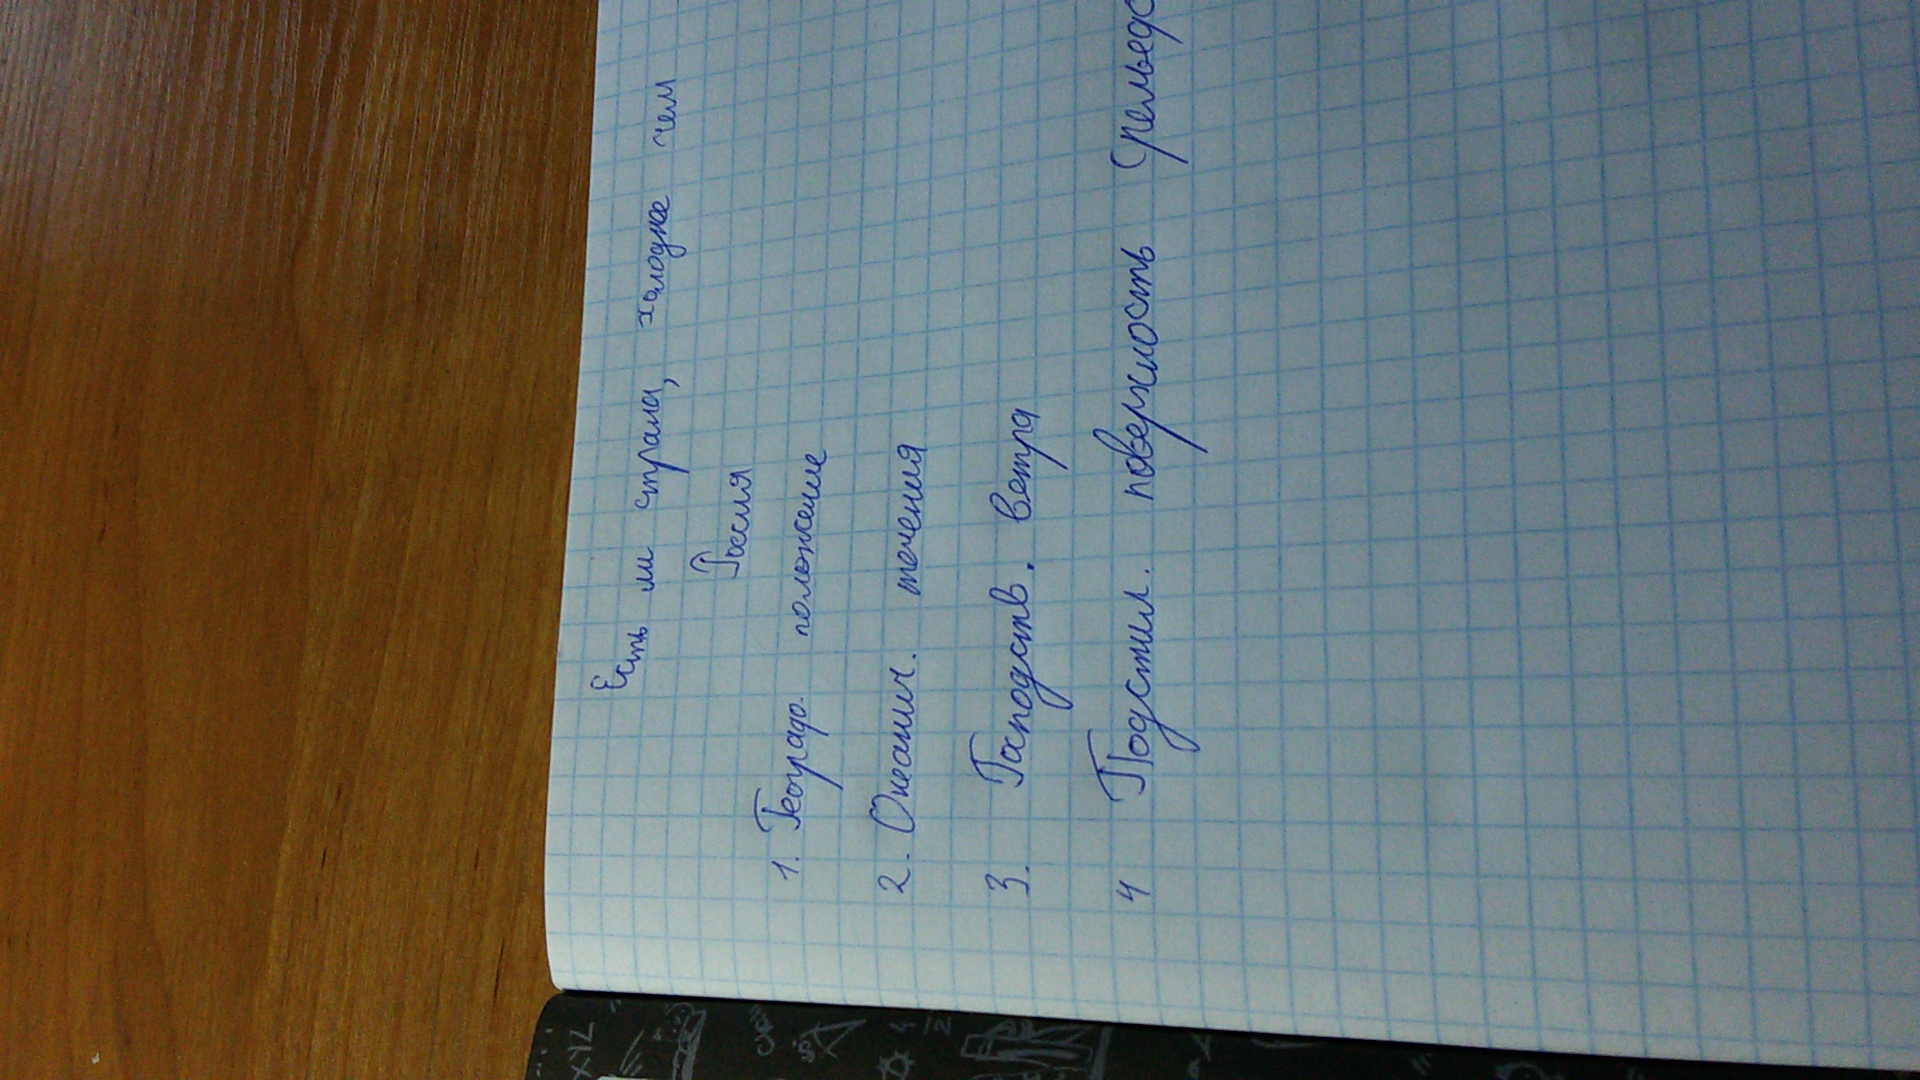 Есть ли страна, холоднее чем
Россия
1. Географ. положение
2. Океанич. течения
3. Господств. ветра
4 Подстил. поверхность